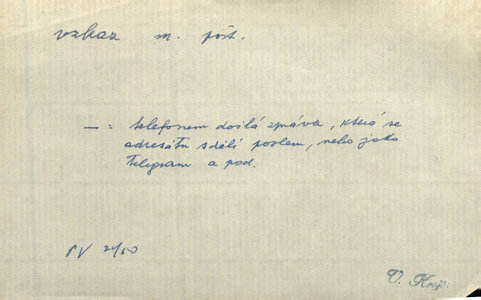 vzkaz m. pošt.
— = telefonem došlá zpráva, která se
adresátu sdělí poslem, nebo jako
telegram a pod.
PV
V. Krejč